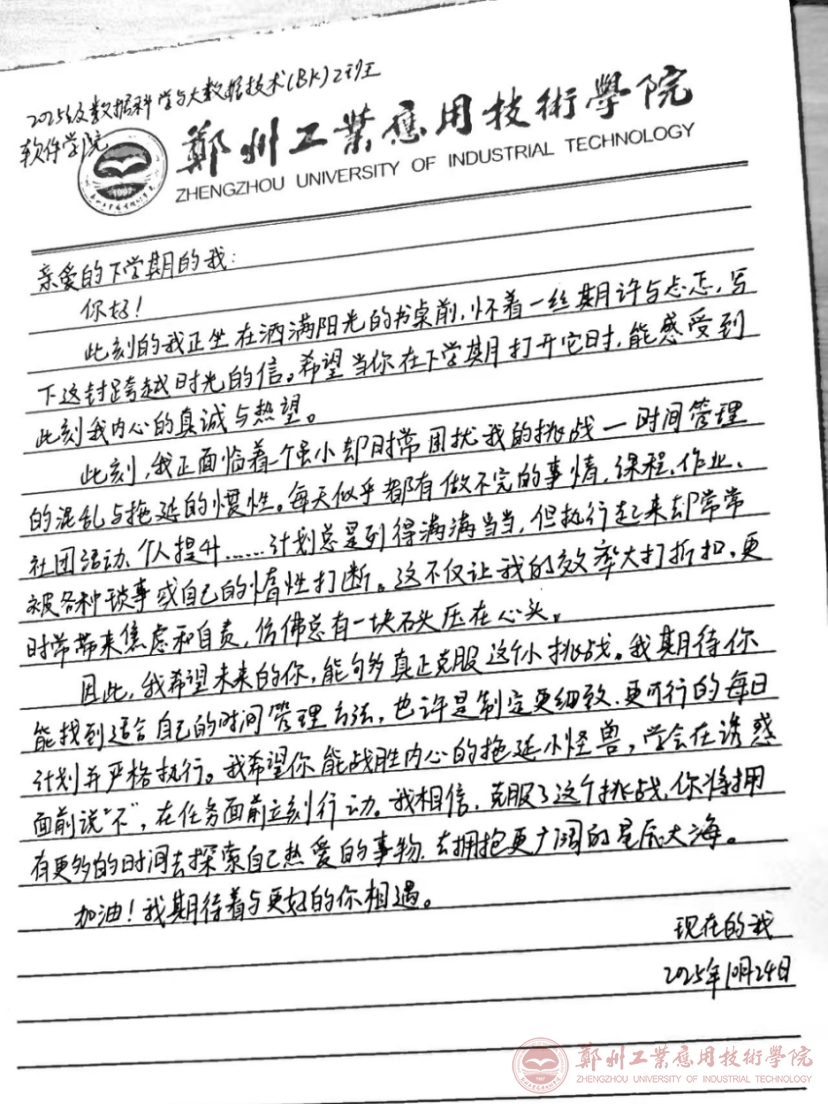 2025级数据科学与大数据技术(BK)2班
软件学院
鄭州工業應用技術學院
ZHENGZHOU UNIVERSITY OF INDUSTRIAL TECHNOLOGY
1997
亲爱的下学期的我:
你好!
此刻的我正坐在洒满阳光的书桌前,怀着一丝期许与忐忑,写
下这封跨越时光的信。希望当你在下学期打开它时,能感受到
此刻我内心的真诚与热望。
此刻,我正面临着一个虽小却时常困扰我的挑战—时间管理
的混乱与拖延的惯性。每天似乎都有做不完的事情,课程、作业、
社团活动、个人提升……计划总是列得满满当当,但执行起来却常常
被各种琐事或自己的惰性打断。这不仅让我的效率大打折扣,更
时常带来焦虑和自责,仿佛总有一块石头压在心头。
因此,我希望未来的你,能够真正克服这个小挑战。我期待你
能找到适合自己的时间管理方法,也许是制定更细致、更可行的每日
计划并严格执行。我希望你能战胜内心的拖延小怪兽,学会在诱惑
面前说“不”,在任务面前立刻行动。我相信,克服了这个挑战,你将拥
有更多的时间去探索自己热爱的事物,去拥抱更广阔的星辰大海。
加油!我期待着与更好的你相遇。
现在的我
2025年10月24日
鄭州工業應用技術學院
ZHENGZHOU UNIVERSITY OF INDUSTRIAL TECHNOLOGY